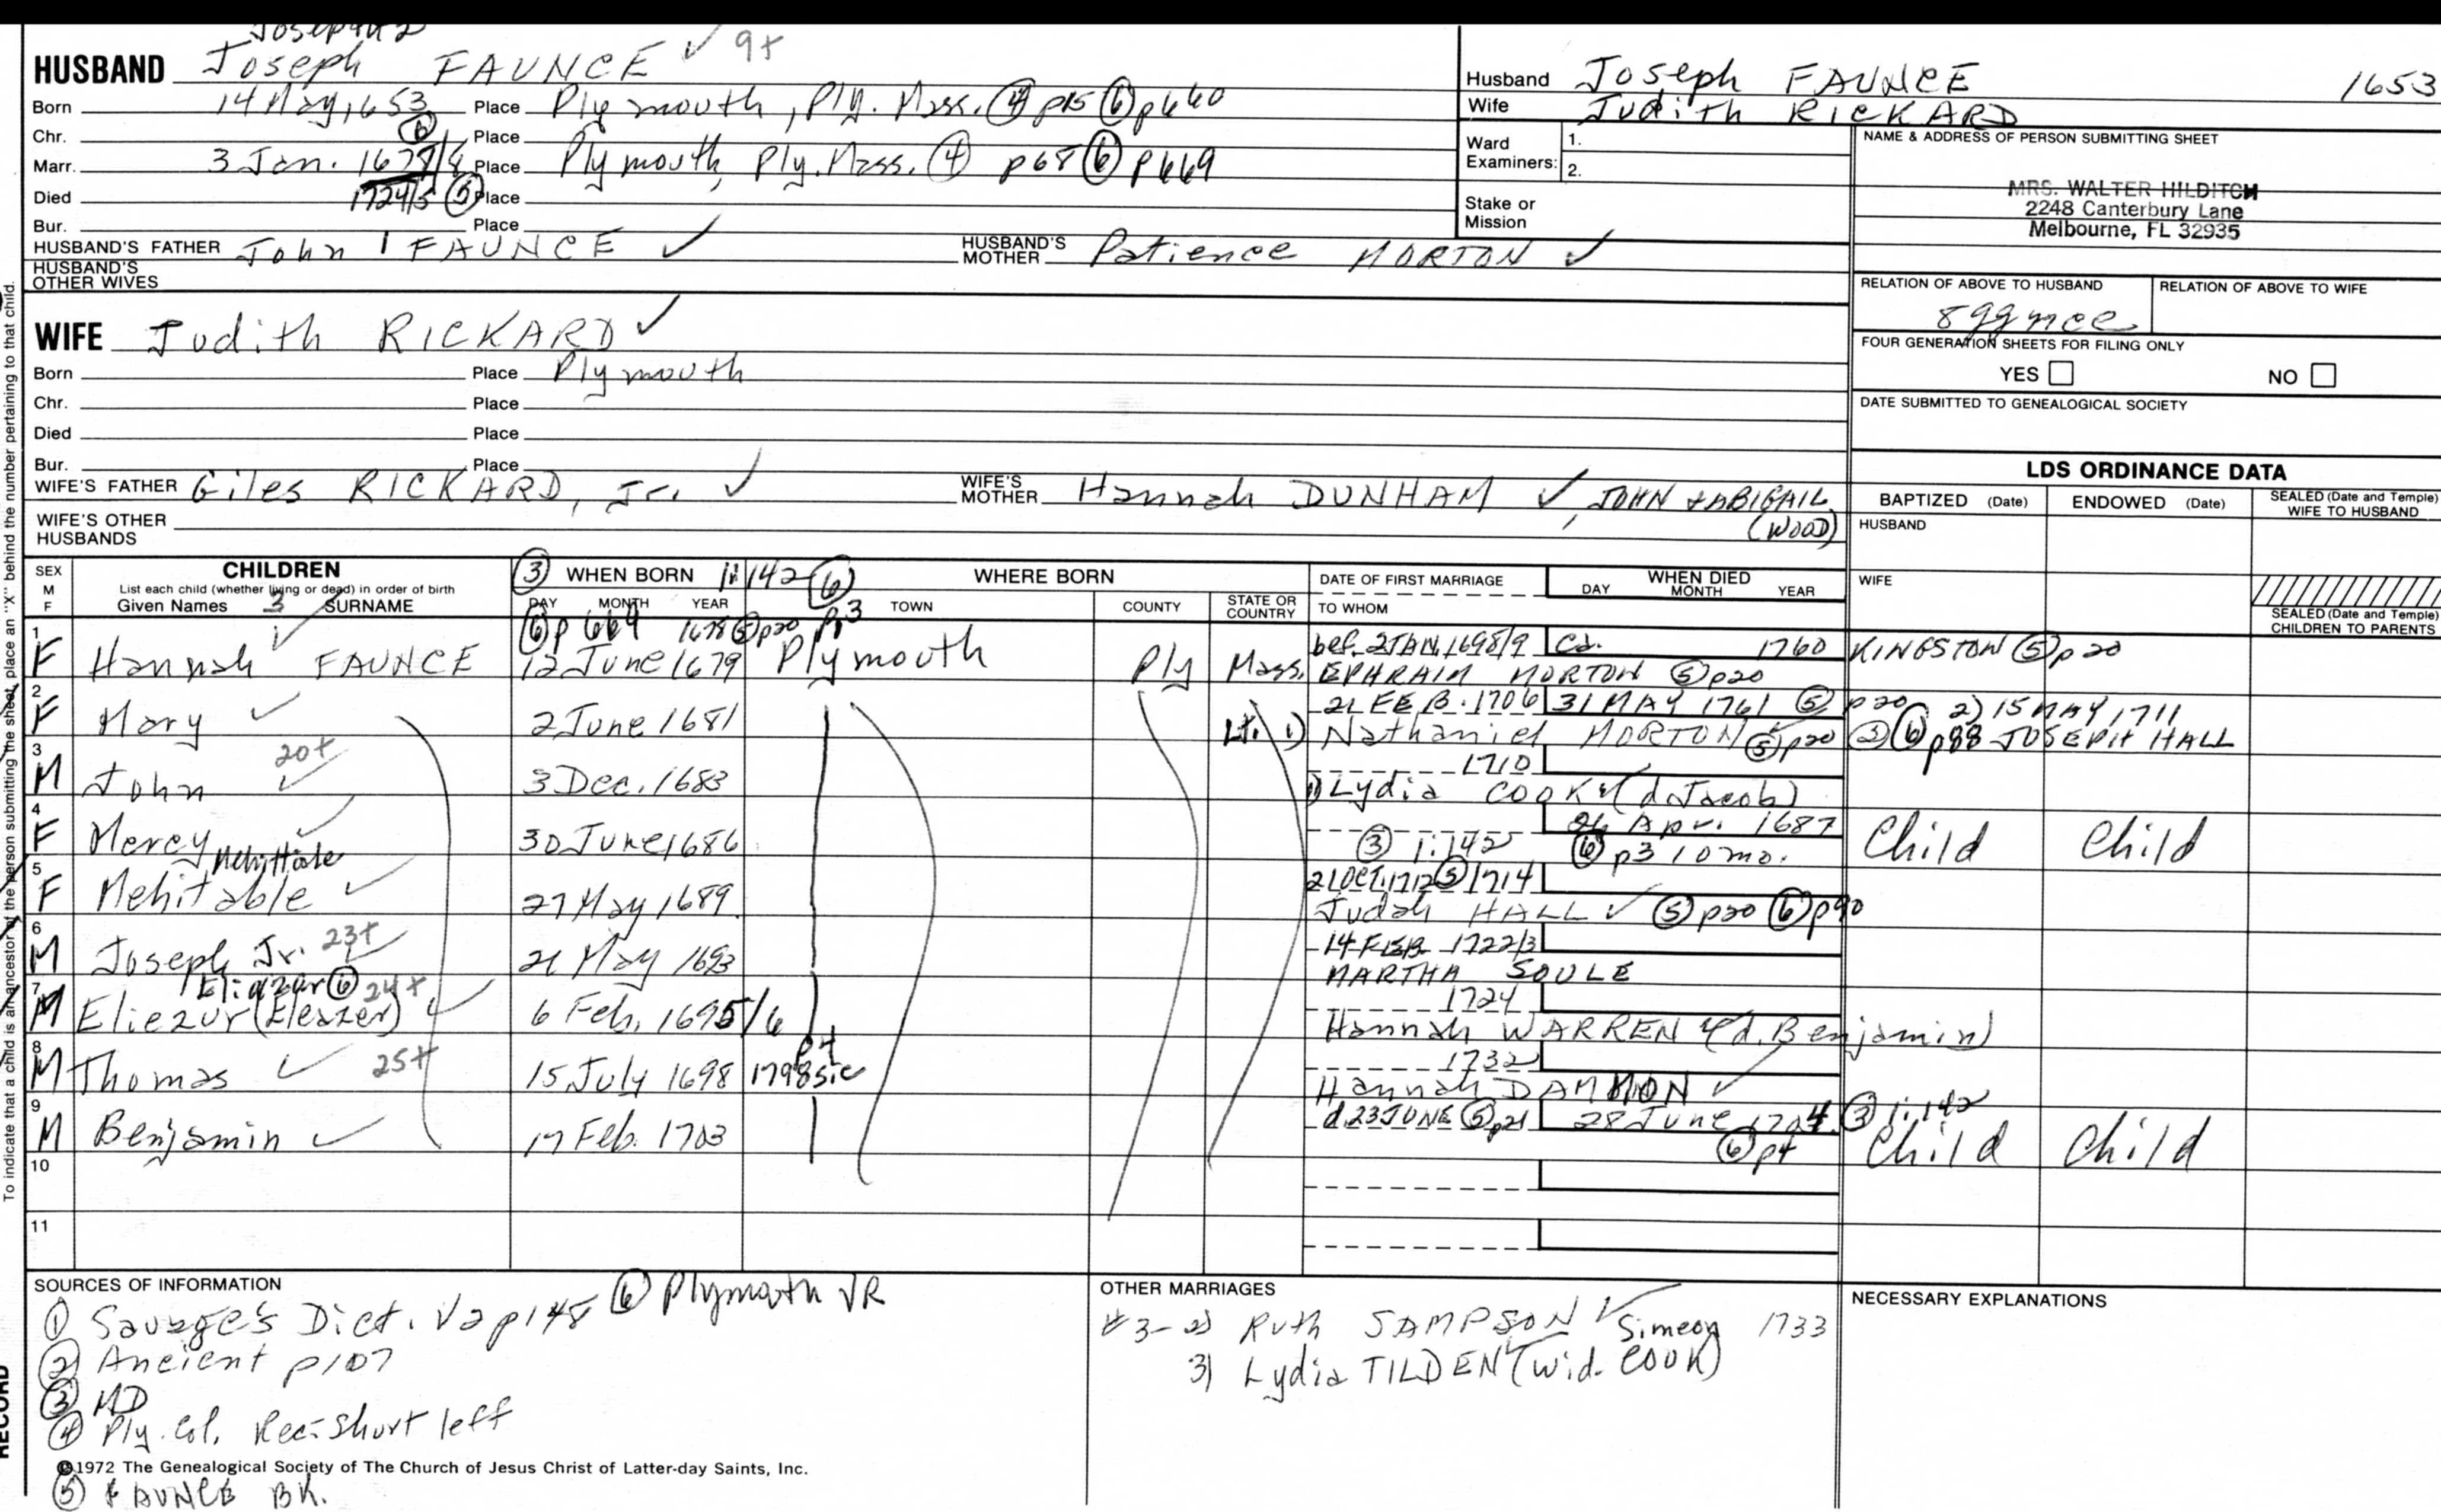 Joseph 2
HUSBAND Joseph FAUNCE ✓ 9+
Born 14 May, 1653 Place Plymouth, Ply. Mass. ④ p15 ⑥ p660
Chr. ⑥ Place
Marr. 3 Jan. 1677/8 Place Plymouth, Ply. Mass. ④ p68 ⑥ p669
Died 1724/5 ⑤ Place
Bur. Place
HUSBAND'S FATHER John FAUNCE ✓ HUSBAND'S MOTHER Patience MORTON ✓
HUSBAND'S OTHER WIVES
Husband Joseph FAUNCE 1653
Wife Judith RICKARD
Ward Examiners: 1.
2.
Stake or Mission
NAME & ADDRESS OF PERSON SUBMITTING SHEET
MRS. WALTER HILDITCH
2248 Canterbury Lane
Melbourne, FL 32935
RELATION OF ABOVE TO HUSBAND RELATION OF ABOVE TO WIFE
8ggnce
FOUR GENERATION SHEETS FOR FILING ONLY
YES NO
DATE SUBMITTED TO GENEALOGICAL SOCIETY
WIFE Judith RICKARD ✓
Born Place Plymouth
Chr. Place
Died Place
Bur. Place
WIFE'S FATHER Giles RICKARD, Jr. ✓ WIFE'S MOTHER Hannah DUNHAM ✓, JOHN & ABIGAIL
(WOOD)
WIFE'S OTHER HUSBANDS
LDS ORDINANCE DATA
BAPTIZED (Date) ENDOWED (Date) SEALED (Date and Temple) WIFE TO HUSBAND
HUSBAND
WIFE
SEALED (Date and Temple) CHILDREN TO PARENTS
SEX M F CHILDREN ③ WHEN BORN 1:142 ⑥ WHERE BORN DATE OF FIRST MARRIAGE WHEN DIED
List each child (whether living or dead) in order of birth DAY MONTH YEAR
Given Names 3 SURNAME DAY MONTH YEAR TOWN COUNTY STATE OR COUNTRY TO WHOM
⑥ p 669 1678 ⑤ p20 p.3
1 F Hannah FAUNCE ✓ 12 June 1679 Plymouth Ply Mass. bef. 2 JAN. 1698/9 Ca. 1760 KINGSTON ⑤ p20
EPHRAIM MORTON ⑤ p20
2 F Mary ✓ 2 June 1681 21 FEB. 1706 31 MAY 1761 ⑤ p20 2) 15 MAY 1711
Lt. 1) Nathaniel MORTON ⑤ p20 ③ ⑥ p88 JOSEPH HALL
3 M John 20+ ✓ 3 Dec. 1683 1710
1) Lydia COOK (d. Jacob)
4 F Mercy ✓ 30 June 1686 26 Apr. 1687 Child Child
③ 1:142 ⑥ p3 10 mo.
Mehittable
5 F Mehitable ✓ 27 May 1689 21 OCT. 1712 ⑤ 1714
Judah HALL ✓ ⑤ p20 ⑥ p90
6 M Joseph Jr. 23+ ✓ 21 May 1693 14 FEB. 1722/3
MARTHA SOULE
Eliazar ⑥ 24+
7 M Eliezur (Eleazer) ✓ 6 Feb. 1695/6 1724
Hannah WARREN (d. Benjamin)
8 M Thomas ✓ 25+ 15 July 1698 1798 sic p4 1732
Hannah DAMMON ✓
9 M Benjamin ✓ 17 Feb. 1703 d. 23 JUNE ⑤ p21 28 June 1704 ③ 1:142
⑥ p4 Child Child
10
11
SOURCES OF INFORMATION ⑥ Plymouth VR
① Savage's Dict. V2 p148
② Ancient p107
③ MD
④ Ply. Col. Rec. Shurtleff
©1972 The Genealogical Society of The Church of Jesus Christ of Latter-day Saints, Inc.
⑤ FAUNCE BK.
OTHER MARRIAGES
#3- 2) Ruth SAMPSON ✓ Simeon 1733
3) Lydia TILDEN (wid. COOK)
NECESSARY EXPLANATIONS
To indicate that a child is an ancestor of the person submitting the sheet, place an "X" behind the number pertaining to that child.
RECORD